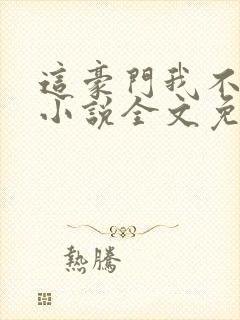 這豪門我不
小說全文免
熱騰